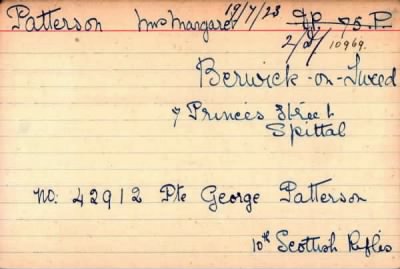 Patterson Mrs Margaret 19/7/23 J.P. 75.P
2/df/10969.
Berwick-on-Tweed
7 Princes Street
Spittal
No: 42912 Pte George Patterson
10th Scottish Rifles